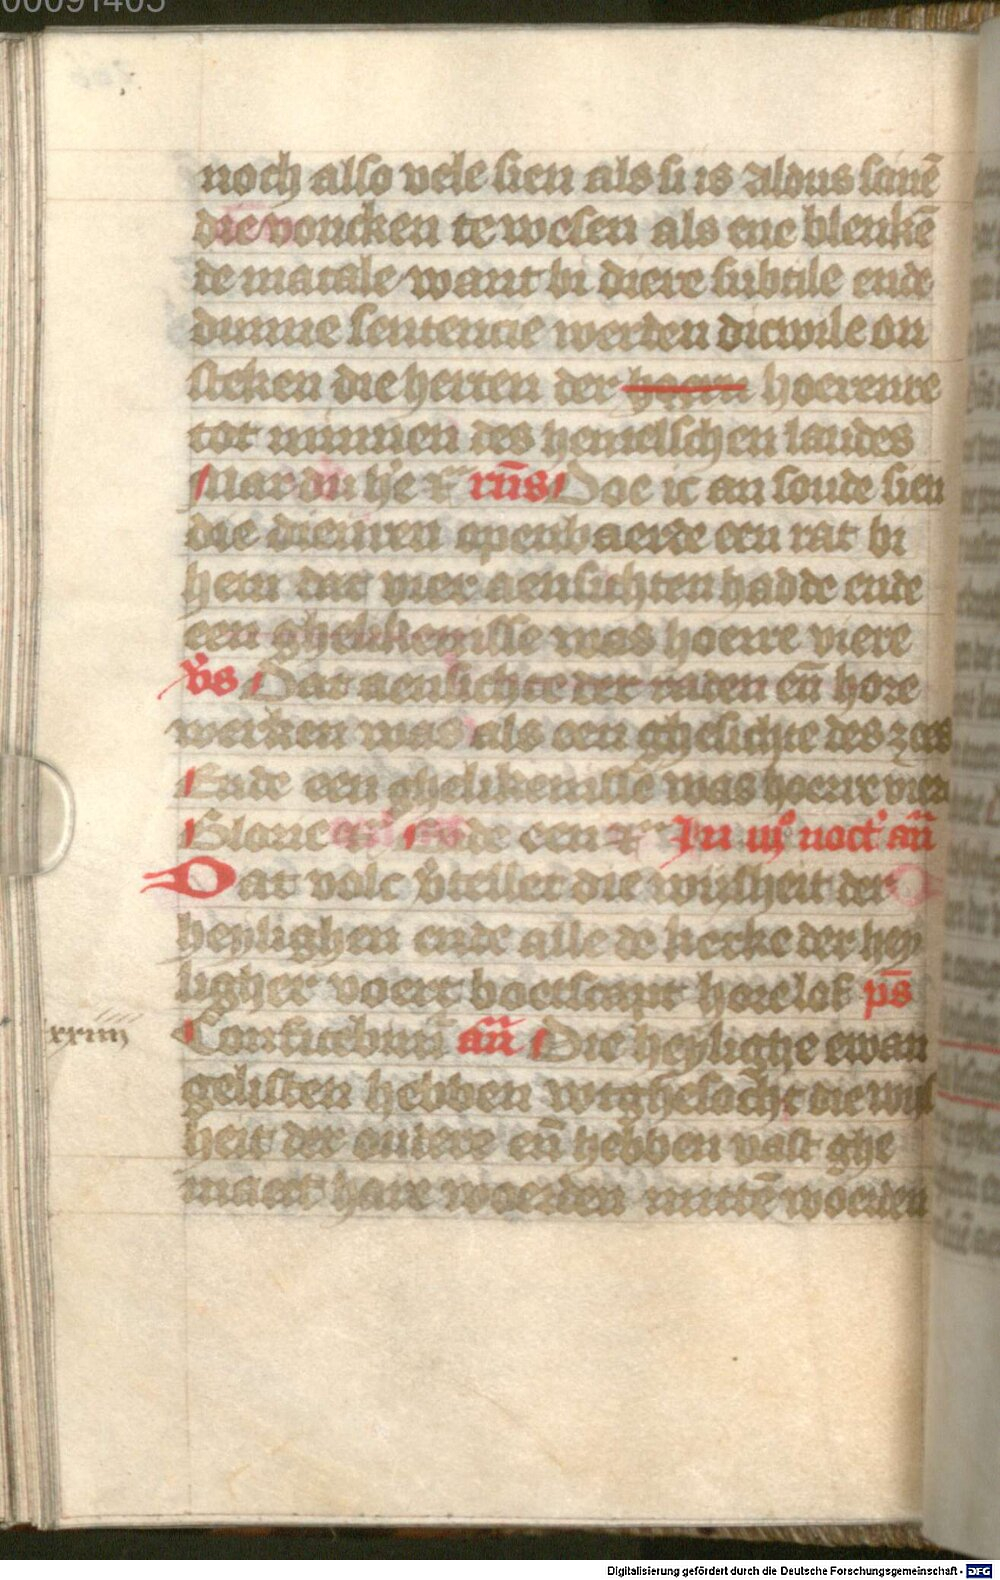 00091405
noch also vele sien als si is Aldus scinē
die voncken te wesen als enc blenkē
de matale want bi diere subtile ende
dunne sentencie werden dicwile on
steken die herten der hoern hoerenre
tot minnen des hemelschen landes
Mar du h'e &c rn̄s Doe ic an soude sien
die dieuren openbaerde een rat bi
hem dat vier aensichten hadde ende
een ghelikenisse was hoerre viere
v̉s Dat aensichte der raden en̄ hore
werken was als een ghesichte des zees
Ende een ghelikenisse was hoerre vier
Glorie Ende een In iij° noct' an̄
Dat volc v̓tellet die wijsheit der
heylighen ende alle de kerke der hey
ligher voert boetscapt hore lof ps̄
xxiiij Confitebimur an̄ Die heylighe ewan
gelisten hebben wtghesocht die wijs
heit der outere en̄ hebben vast ghe
maect hare woerden mittē woerden
Digitalisierung gefördert durch die Deutsche Forschungsgemeinschaft - DFG